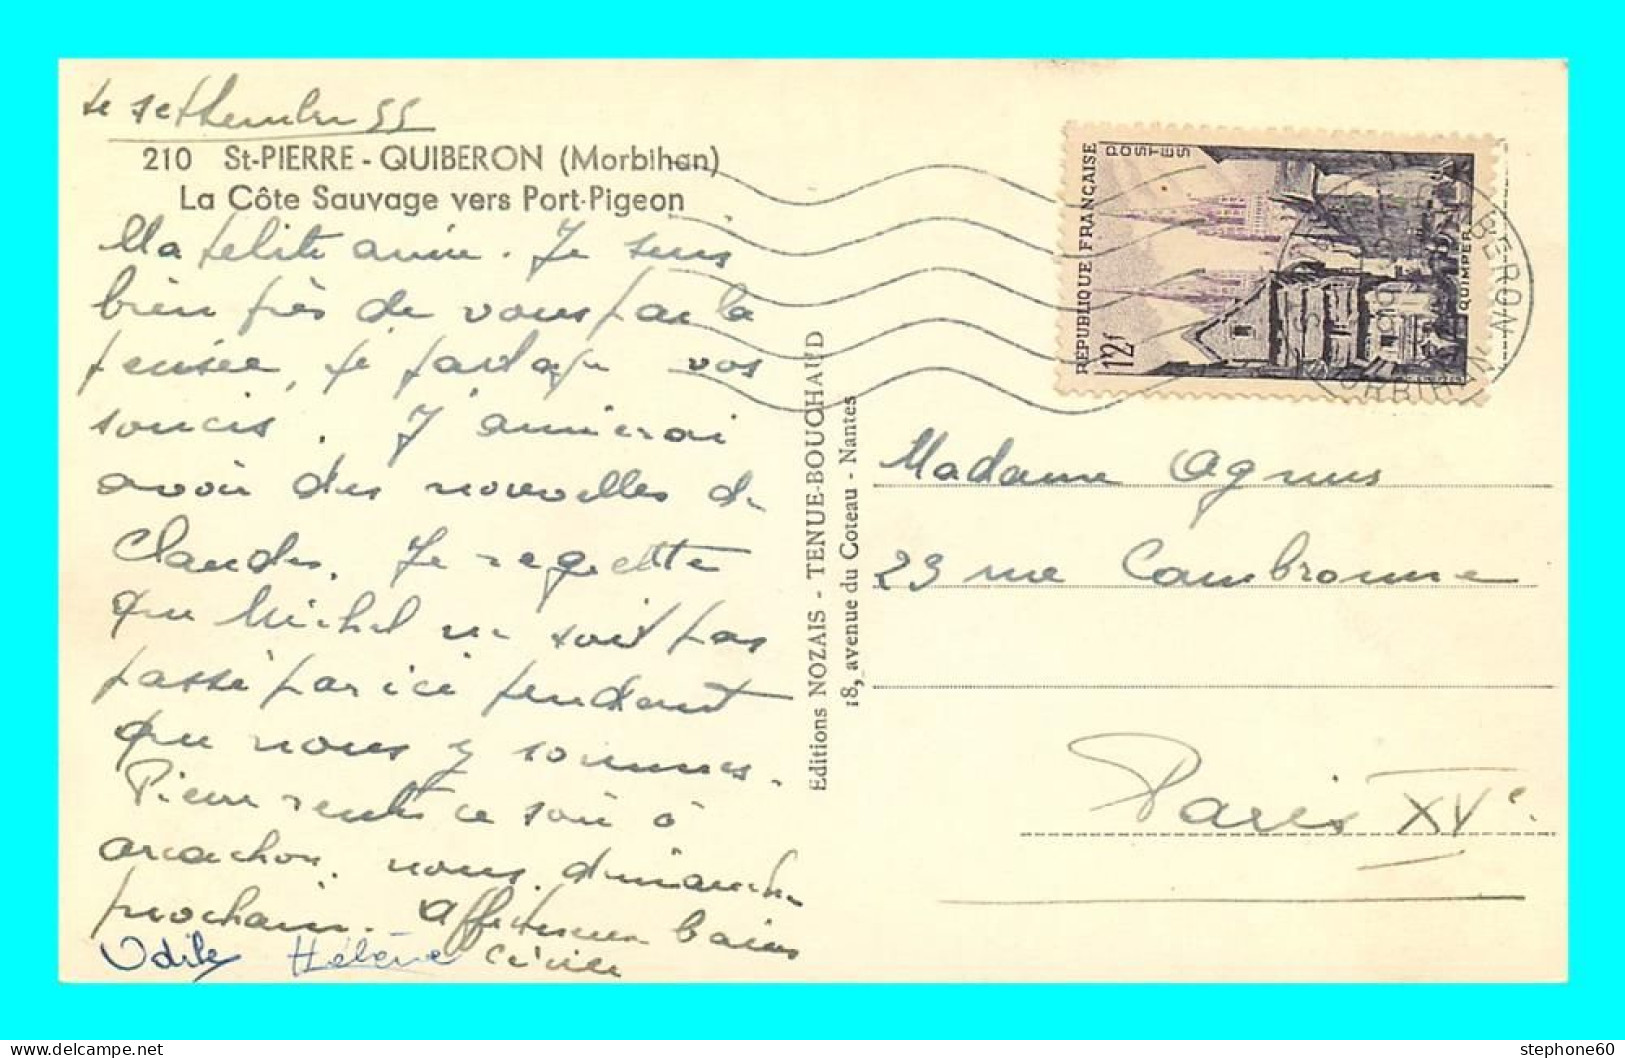 septembre 55
210 St-PIERRE - QUIBERON (Morbihan)
La Côte Sauvage vers Port-Pigeon
Ma petite amie. Je suis
bien près de vous par la
pensée, je partage vos
soucis. J'aimerai
avoir des nouvelles de
Claudes. Je regrette
que Michel ne soit pas
passé par ici pendant
que nous y sommes.
Pierre rentre ce soir à
arcachon. nous dimanche
prochain. Affectueux baisers
Odile Hélène Cécile
Editions NOZAIS - TENUE-BOUCHAUD
18, avenue du Coteau - Nantes
REPUBLIQUE FRANÇAISE
POSTES
12f
QUIMPER
BERON
MORBIHAN
Madame Agnus
23 rue Cambronne
Paris XVe.
stephone60